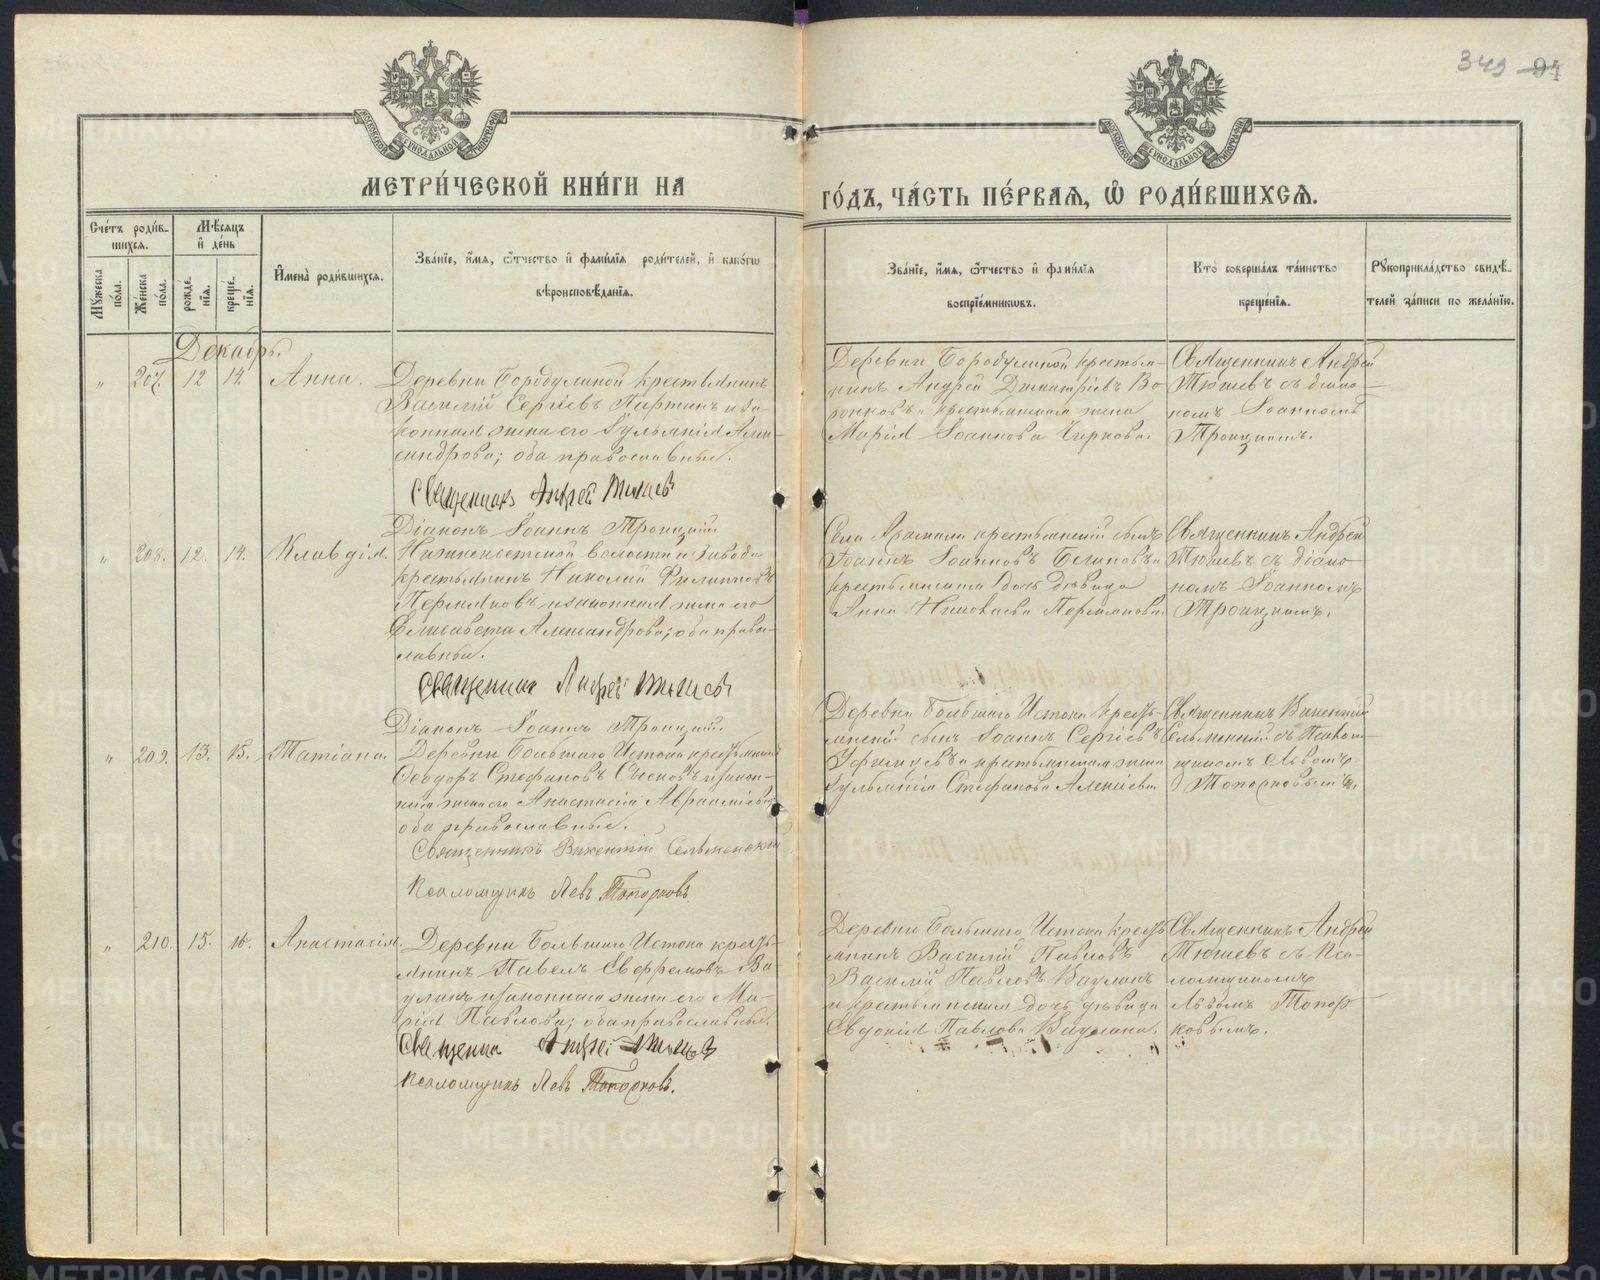 349 94
МОСКОВСКОЙ СѴНОДАЛЬНОЙ ТИПОГРАФІИ
МОСКОВСКОЙ СѴНОДАЛЬНОЙ ТИПОГРАФІИ
МЕТРИ́ЧЕСКОЙ КНИ́ГИ НА
ГО́ДЪ, ЧА́СТЬ ПЕ́РВАЯ, Ѡ҆ РОДИ́ВШИХСЯ.
Сче́тъ роди́в-
шихся.
Му́жеска по́ла.
Же́нска по́ла.
Мѣ́сяцъ
и҆ де́нь
рожде́-
нїя.
креще́-
нїя.
И҆мена̀ роди́вшихся.
Зва́нїе, и҆́мя, ѻ҆́тчество и҆ фами́лїя роди́телей, и҆ како́гѡ
вѣроисповѣ́данїя.
Зва́нїе, и҆́мя, ѻ҆́тчество и҆ фами́лїя
воспрїе́мникѡвъ.
Кто̀ соверша́лъ та́инство
креще́нїя.
Рꙋкоприкла́дство свидѣ́-
телей за́писи по жела́нїю.
Декабрь.
" 207. 12 14. Анна.
Деревни Бородулиной крестьянинъ
Василій Сергіевъ Паршинъ и за-
конная жена его Іульянія Алек-
сандрова; оба православные.
Священникъ Андрей Тюшевъ
Діаконъ Іоаннъ Троицкій.
Деревни Бородулиной крестья-
нинъ Андрей Димитріевъ Во-
ронковъ и крестьянская жена
Марія Іоаннова Чиркова.
Священникъ Андрей
Тюшевъ съ діако-
номъ Іоанномъ
Троицкимъ.
" 208. 12. 14. Клавдія.
Нижнеисетской волости и завода
крестьянинъ Николай Филипповъ
Пермяковъ и законная жена его
Елисавета Александрова; оба право-
славные.
Священникъ Андрей Тюшевъ
Діаконъ Іоаннъ Троицкій.
Села Арамили крестьянскій сынъ
Іоаннъ Іоанновъ и
крестьянская дочь девица
Анна Николаева Пермякова.
Священникъ Андрей
Тюшевъ съ діако-
номъ Іоанномъ
Троицкимъ.
" 209. 13. 15. Татіана.
Деревни Большаго Истока крестьянинъ
Ѳеодоръ Стефановъ Сысковъ и закон-
ная жена его Анастасія Аврааміева;
оба православные.
Священникъ Викентій Сельменскій
Псаломщикъ Левъ Топорковъ
Деревни Большаго Истока кресть-
янскій сынъ Іоаннъ Сергіевъ
и крестьянская жена
Іульянія Стефанова Алексіева.
Священникъ Викентій
Сельменскій съ Псалом-
щикомъ Львомъ
Топорковымъ.
" 210. 15. 16. Анастасія.
Деревни Большаго Истока кресть-
янинъ Павелъ Евфремовъ Ва-
улинъ и законная жена его Ма-
рія Павлова; оба православные.
Священник Андрей Тюшевъ
Псаломщикъ Левъ Топорковъ.
Деревни Большаго Истока кресть-
янинъ Василій Павловъ
Василій Павловъ Ваулинъ
и крестьянская дочь девица
Евдокія Павлова Ваулина.
Священникъ Андрей
Тюшевъ съ Пса-
ломщикомъ
Львомъ Топор-
ковымъ.
METRIKI.GASO-URAL.RU